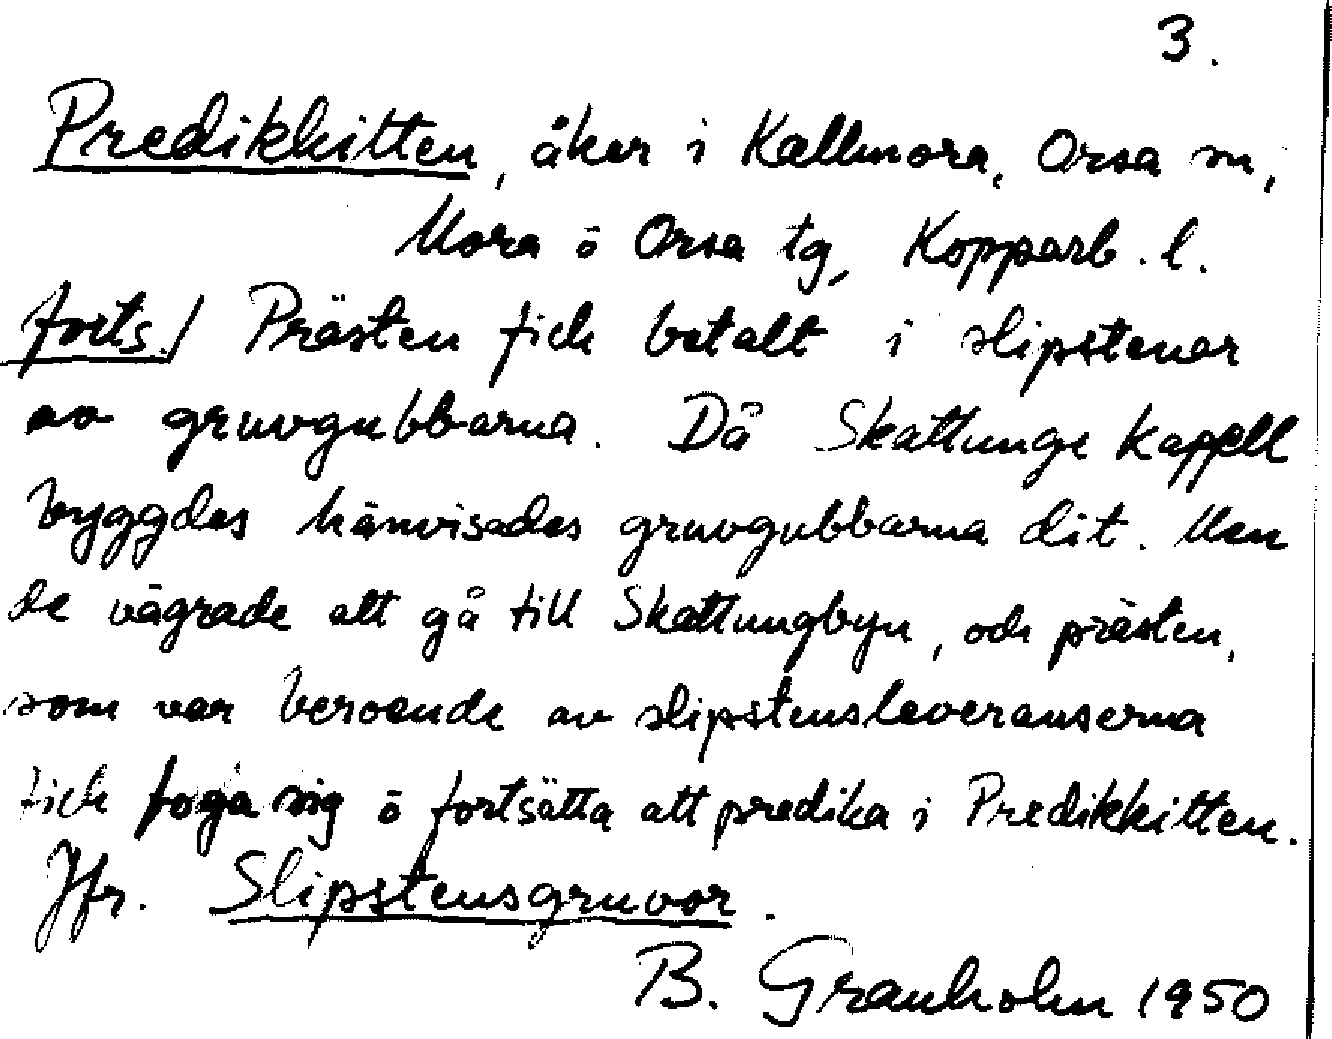 3.
Predikkitten, åker i Kallmora, Orsa sn,
Mora ō Orsa tg, Kopparb. l.
forts./ Prästen fick betalt i slipstenar
av gruvgubbarna. Då Skattunge kapell
byggdes hänvisades gruvgubbarna dit. Men
de vägrade att gå till Skattungbyn, och prästen,
som var beroende av slipstensleveranserna
fick foga sig ō fortsätta att predika i Predikkitten.
Jfr. Slipstensgruvor.
B. Granholm 1950